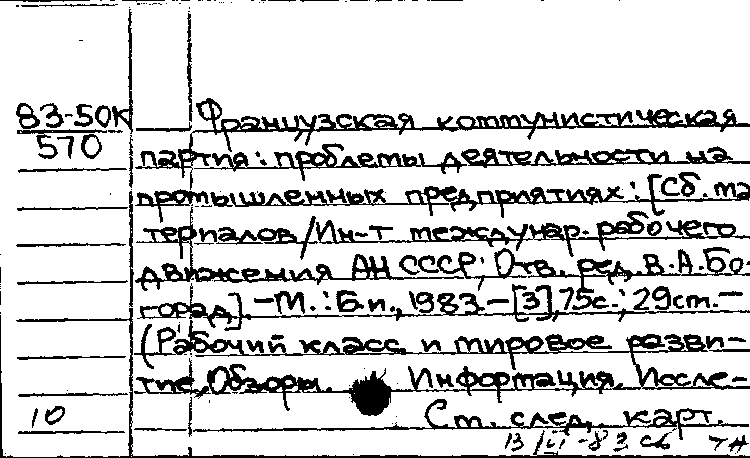 83-50К
570
Французская коммунистическая
партия: проблемы деятельности на
промышленных предприятиях: [Сб. ма
териалов/Ин-т междунар. рабочего
движения АН СССР; Отв. ред. В.А.Бо-
город]. - М.: Б.и., 1983. - [3], 75с.; 29см. -
(Рабочий класс и мировое разви-
тие, Обзоры. Информация. Иссле-
10
См. след. карт.
13/III-83